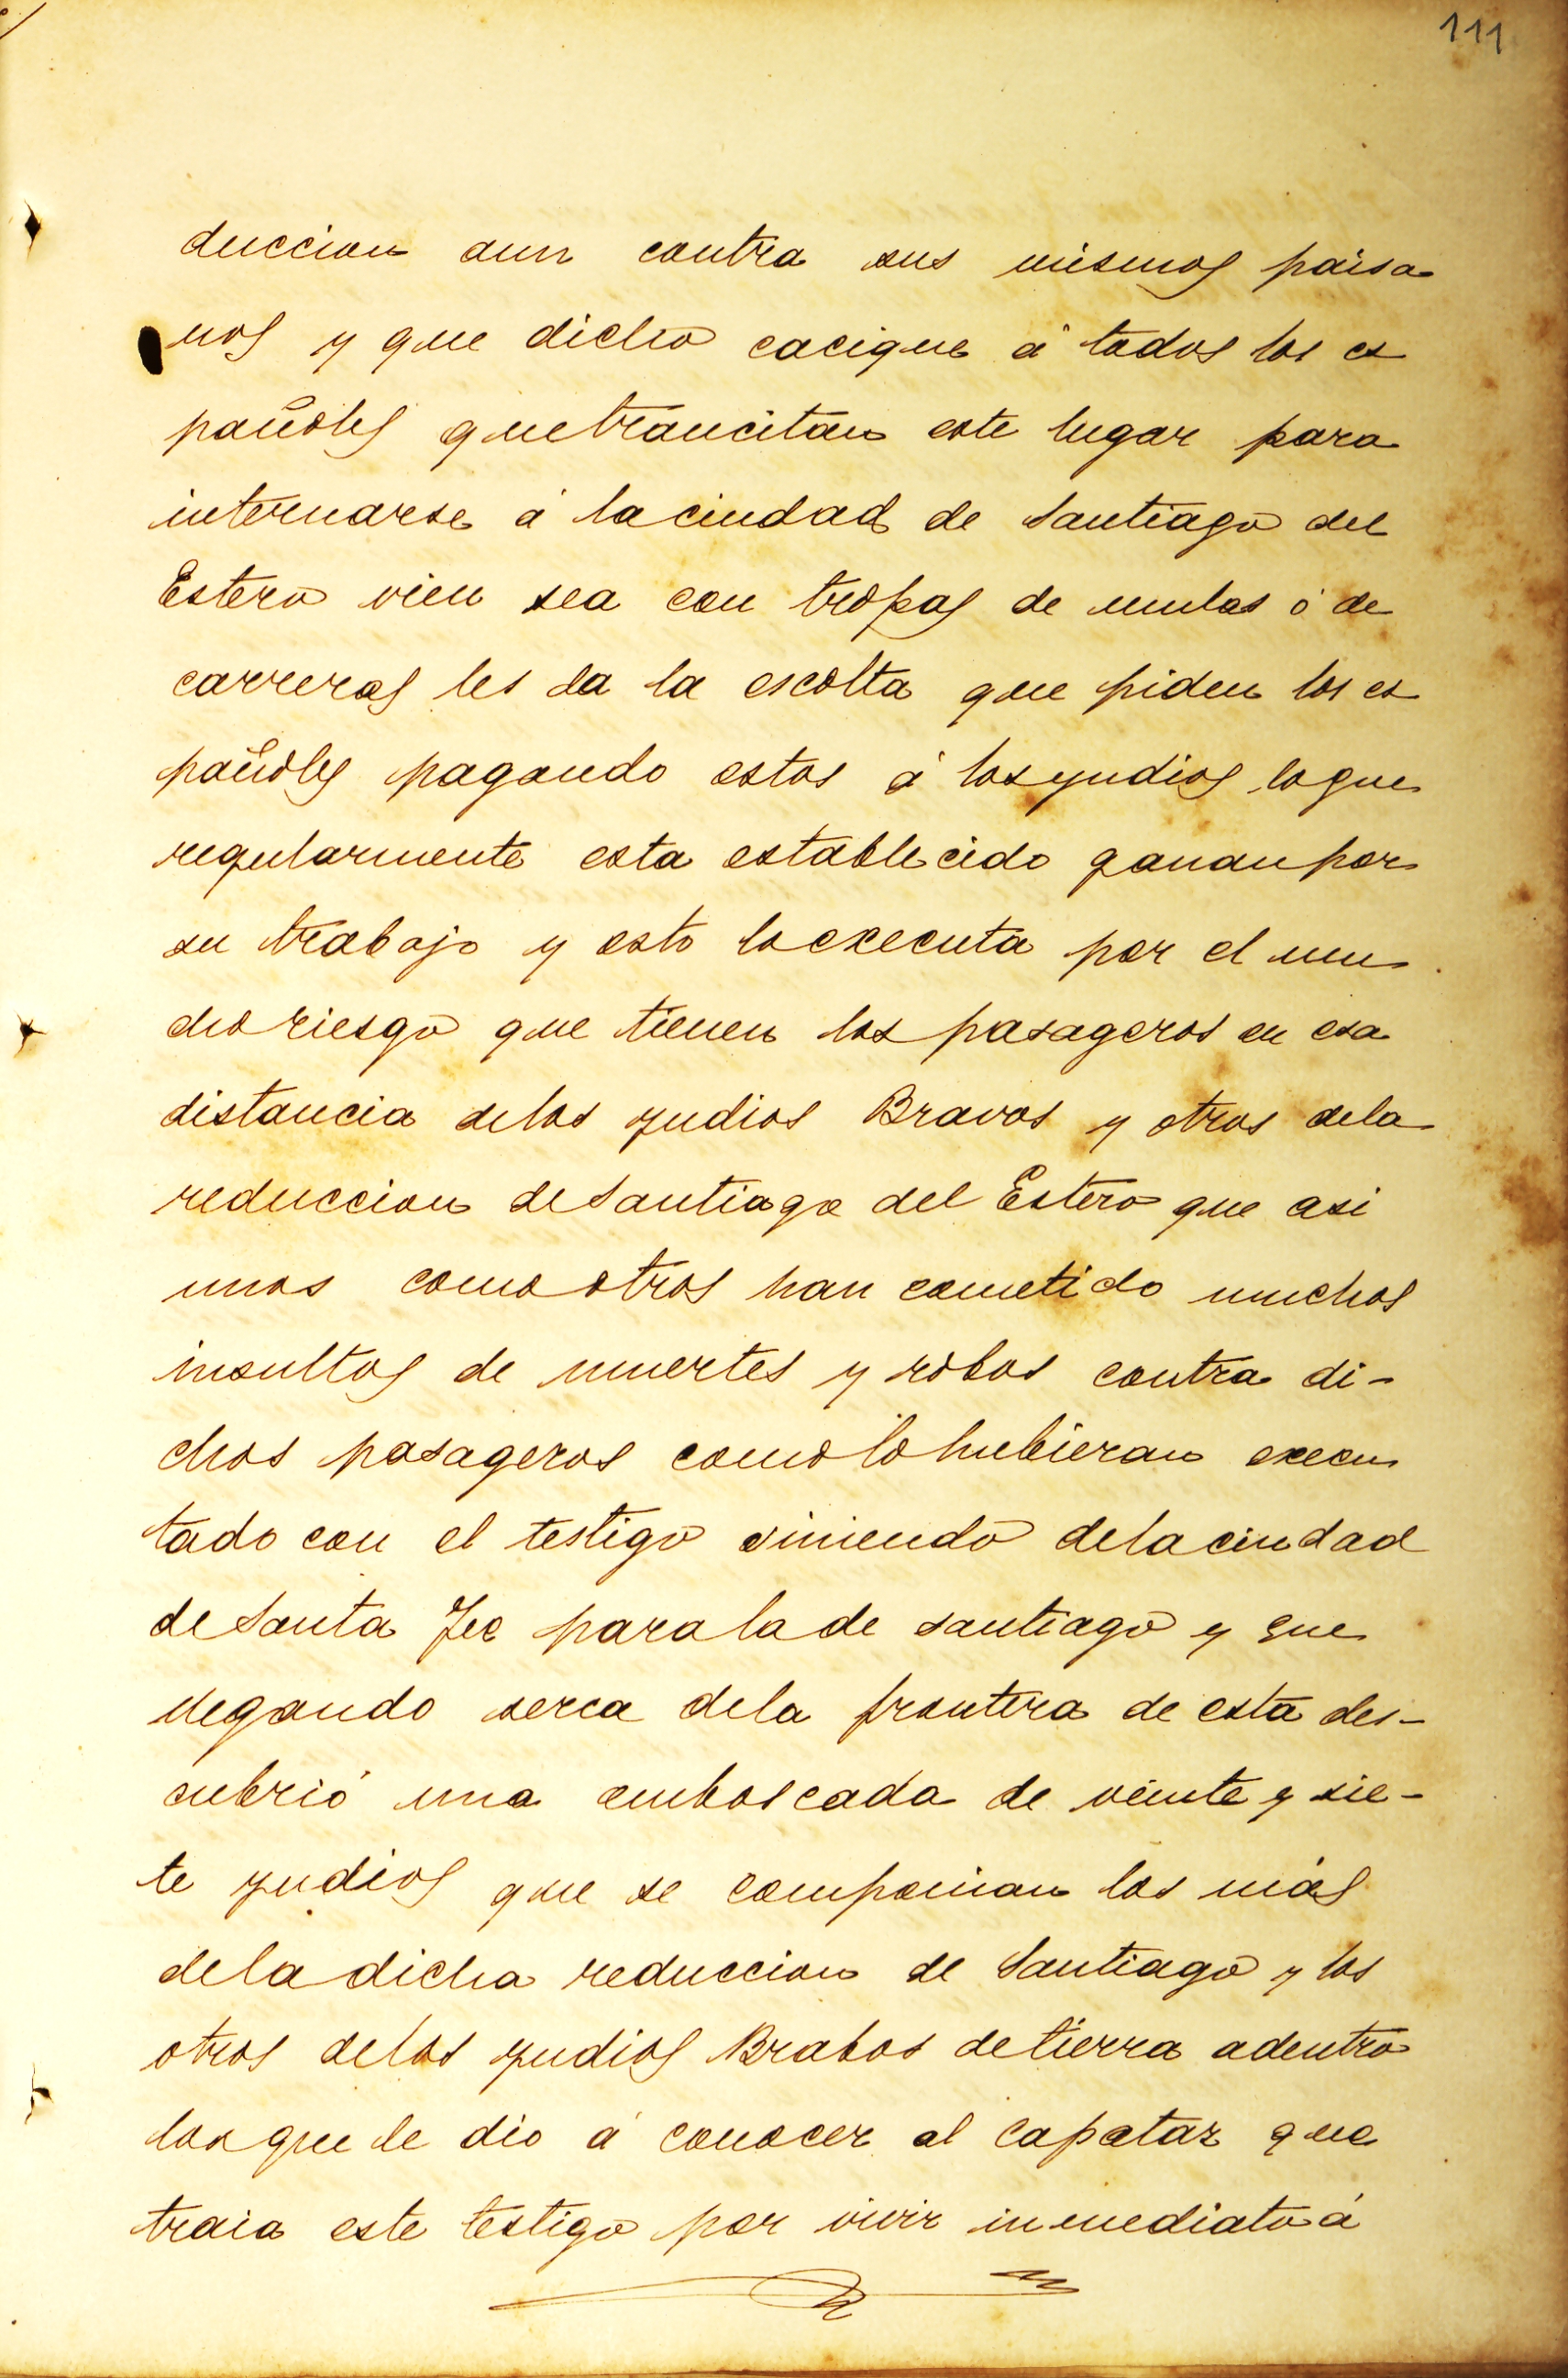 111
duccion aun contra sus mismos paisa
nos y que dicho cacique á todos los es
pañoles quetrancitan este lugar para
internarse á laciudad de Santiago del
Estero vien sea con tropas de mulas ó de
carreras les da la escolta que piden los es
pañoles pagando estos á losyndios loque
regularmente esta establecido gananpor
su trabajo y esto loexecuta por el mu
choriesgo que tienen los pasageros en esa
distancia delos yndios Bravos y otros dela
reduccion deSantiago del Estero que asi
unos comootros han cometido muchos
insultos de muertes y robos contra di-
chos pasageros comolohubieran execu
tado con el testigo viniendo delaciudad
deSanta Fee paralade santiago y que
llegando serca dela frontera de esta des-
cubrió una emboscada de veinte y sie-
te yndios que se componian los más
deladicha reduccion de Santiago y los
otros delos yndios Brabos detierra adentro
losquele dio á conocer el capataz que
traia este testigo por vivir inmediatoá